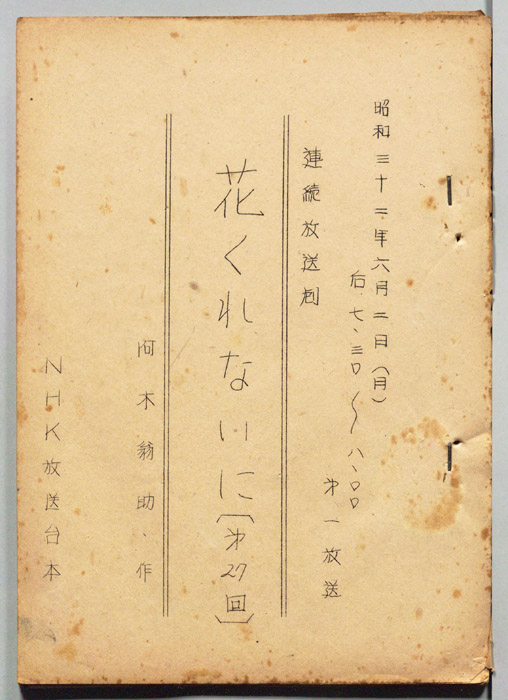 昭和三十三年六月二日(月)
后七、三〇〜八、〇〇
第一放送
連続放送劇
花くれないに〔第27回〕
阿木翁助・作
NHK放送台本